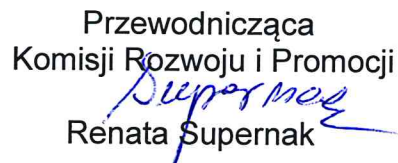 Przewodnicząca
Komisji Rozwoju i Promocji
Supernak
Renata Supernak